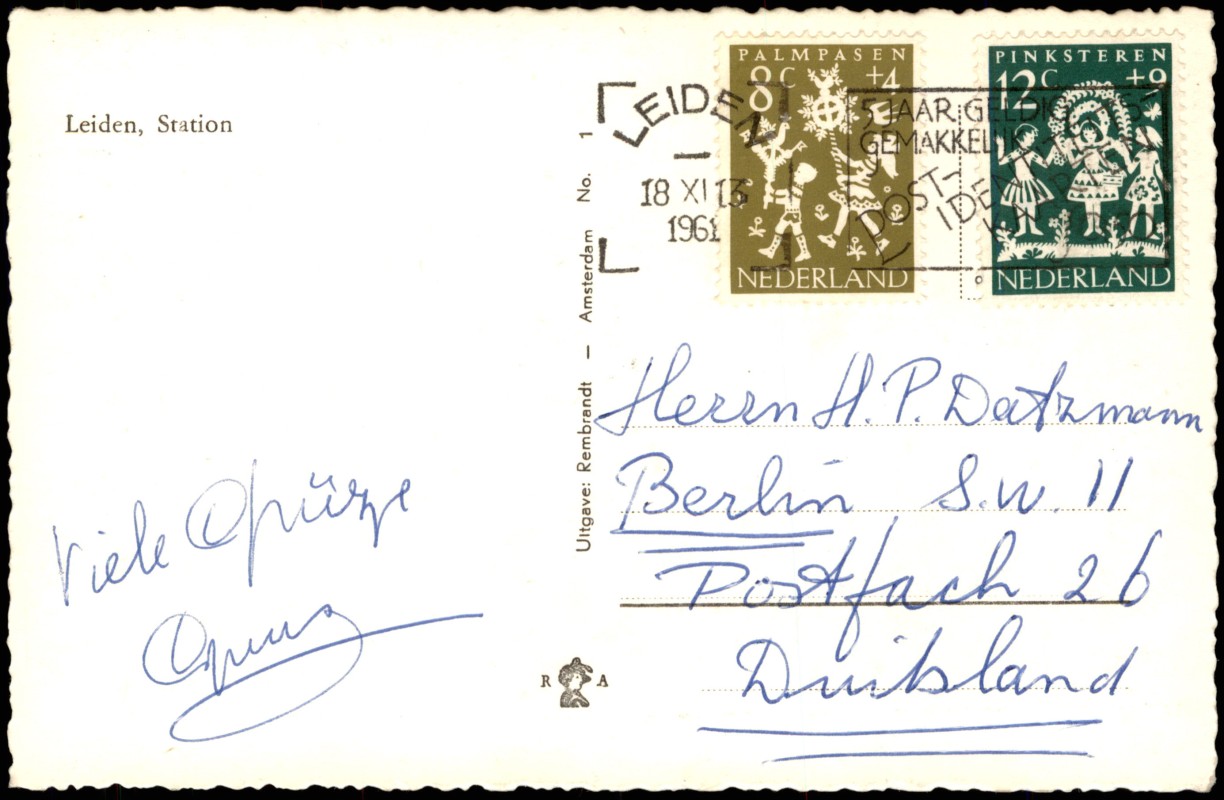 Leiden, Station
PALMPASEN
8c +4
NEDERLAND
PINKSTEREN
12c +9
NEDERLAND
LEIDEN
18 XI 13
1961
5 JAAR GELDIG
GEMAKKELIJK
POST-
Uitgave: Rembrandt — Amsterdam No. 1
Herrn H. P. Datzmann
Berlin S.W. 11
Postfach 26
Duitsland
Viele Grüße
R A